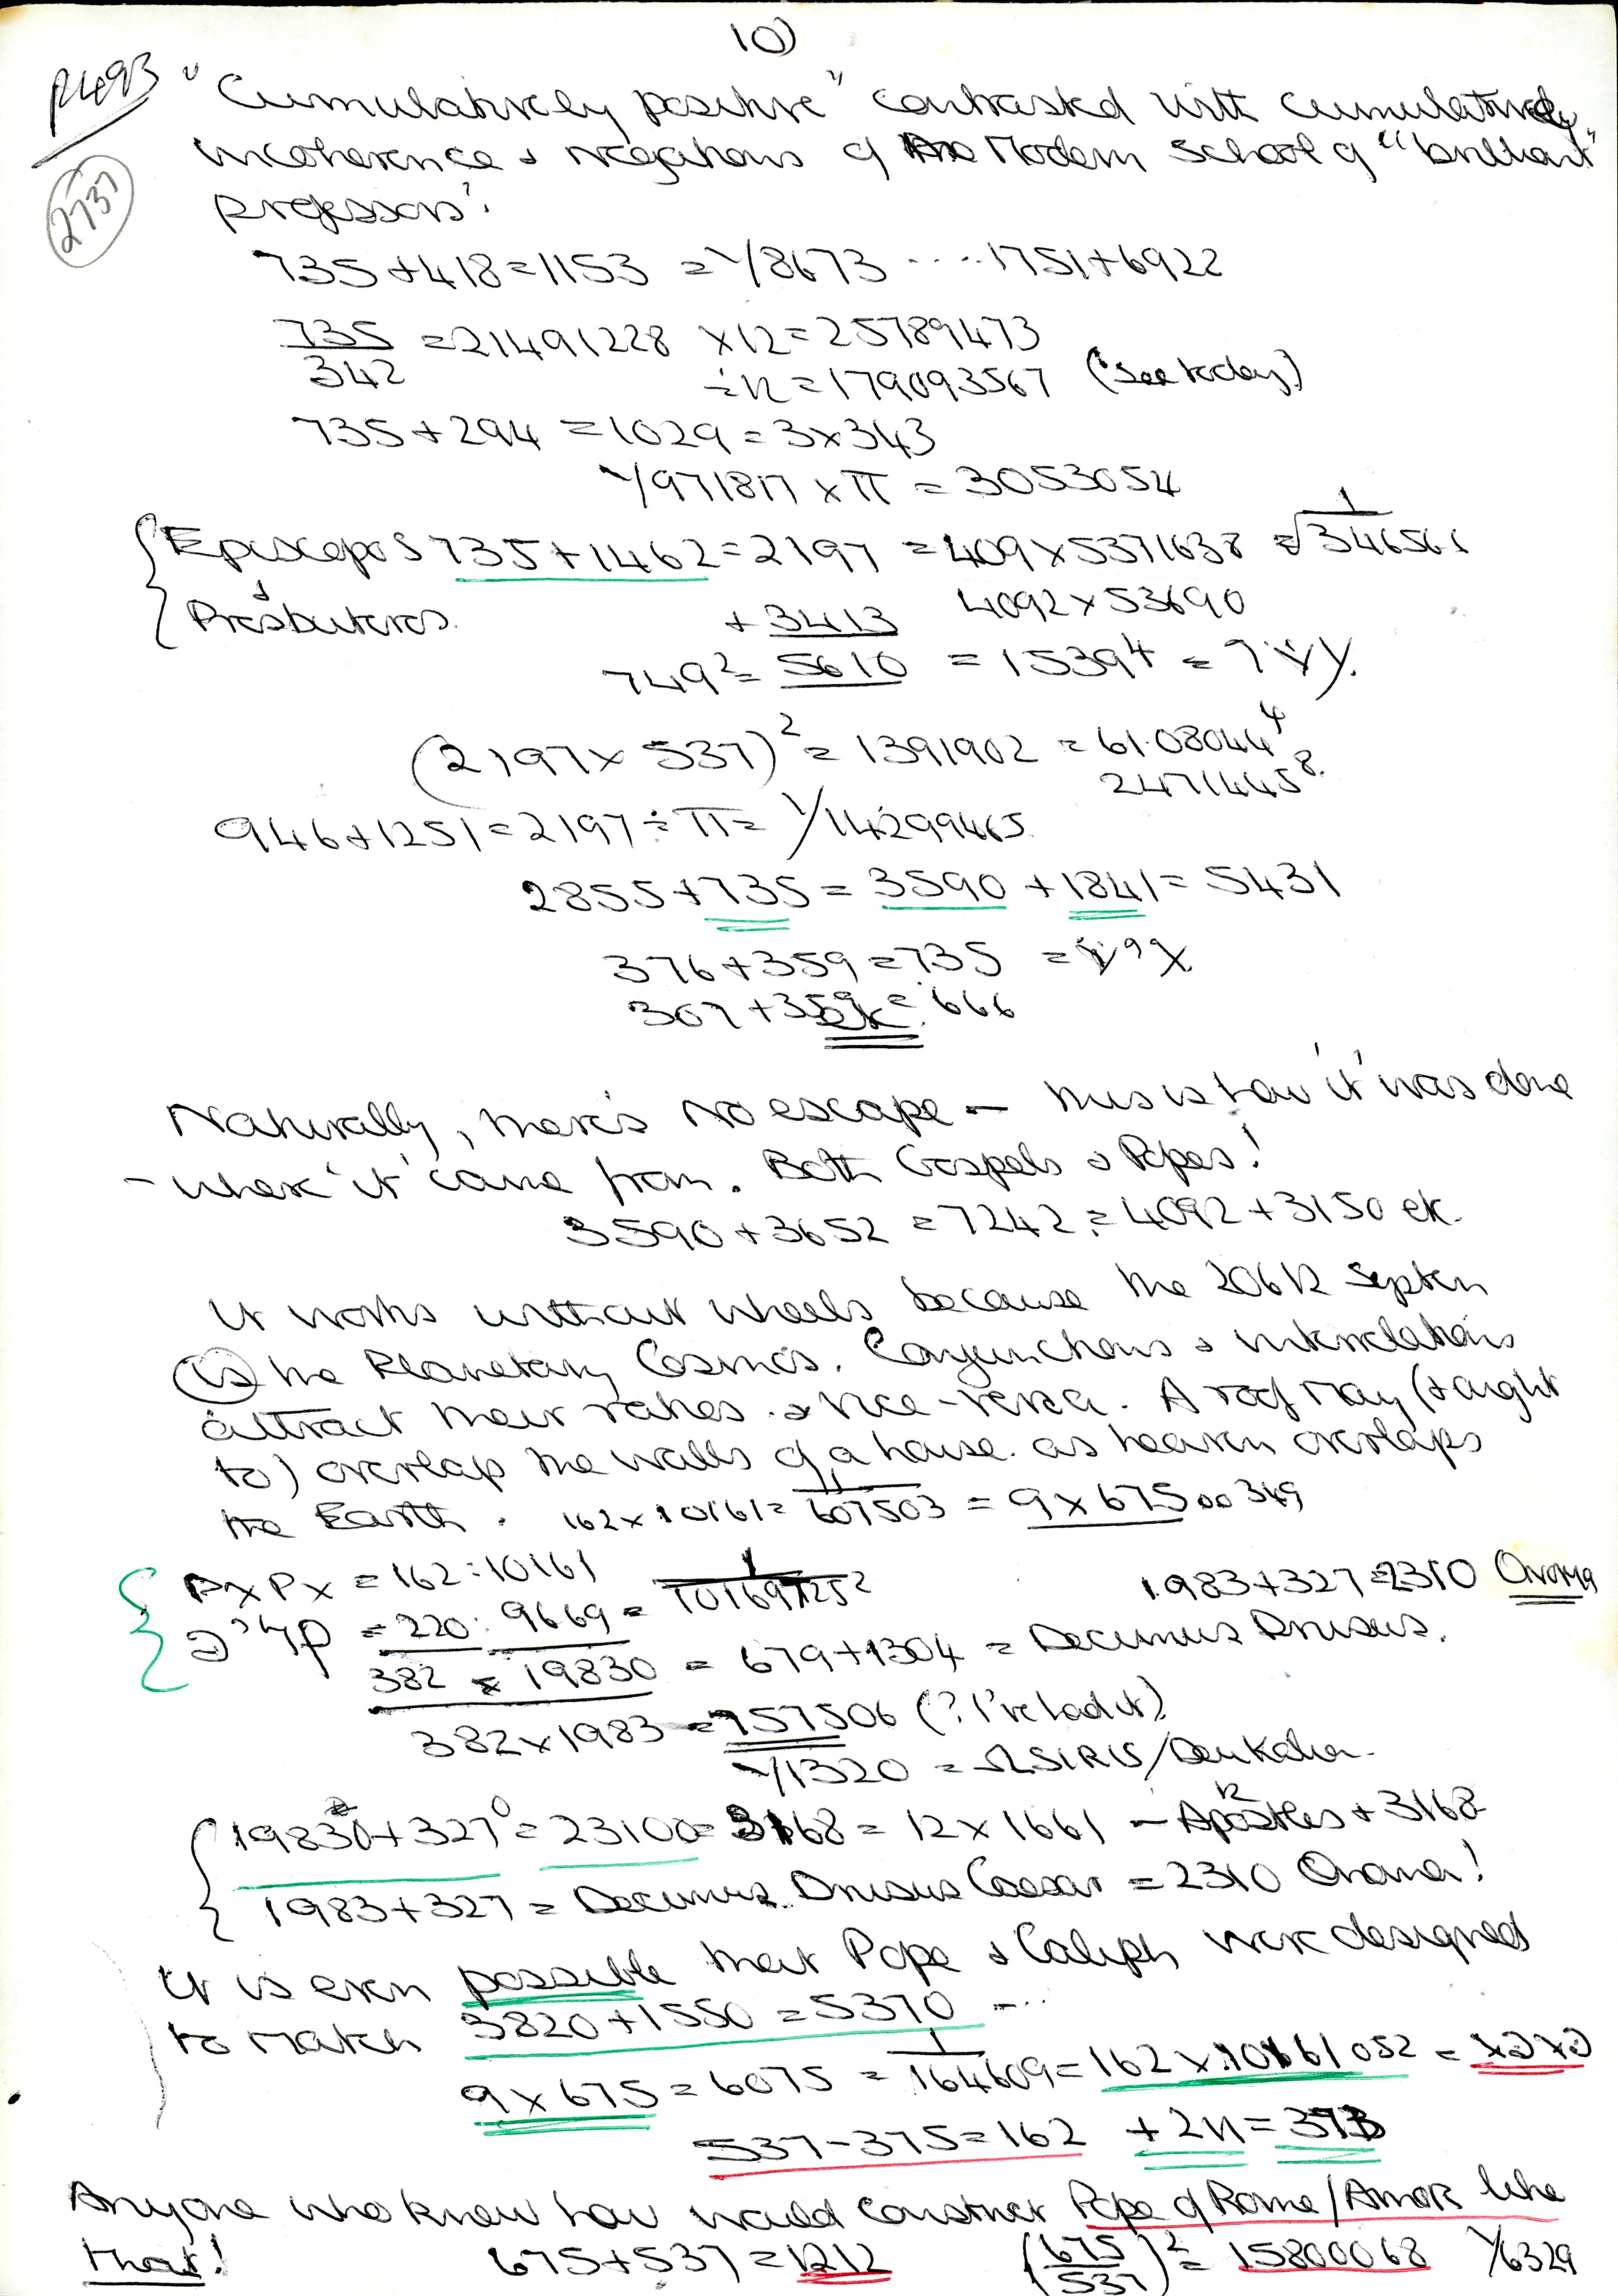 10)
P493
2737
"Cumulatively positive" contrasted with cumulatively
incoherence & negations of the Modern School of "brilliant"
professors'.
735+418=1153 = 1/8673 ....1751+6922
735/342 = 21491228 ×12=25789473
÷12=179093567 (See today)
735+294=1029=3×343
1/971817×π = 3053054
Episcopos 735+1462=2197 =409×5371638 = √1/346561
& Presbuteros. +3413 4092×53690
749²= 5610 = 15394 =
(2197×537)²= 1391902 = 61.08044⁴
2471445⁸.
946+1251=2197÷π= 1/14299465
2855+735=3590+1841=5431
376+359=735
307+359=666
etc.
Naturally, there's no escape – this is how 'it' was done
- where 'it' came from. Both Gospels & Popes!
3590+3652=7242=4092+3150 etc.
It works without wheels because the 20612 Septen
is the Planetary Cosmos. Conjunctions & interrelations
attract their values & vice-versa. A roof may (& ought
to) overlap the walls of a house as heaven overlaps
the Earth. 162×10161= 1/607503 = 9×67500349
= 162:10161 1983+327=2310 Onoma
= 220:9669 =
382 × 19830 = 679+1304 = Decimus Drusus.
382×1983=757506 (? I've had it)
1/1320 = ΩSIRIS/Deukalion
19830+3270=23100=3168=12×1661 – 12 Apostles + 3168
1983+327 = Decimus Drusus Caesar = 2310 Onoma!
It is even possible that Pope & Caliph were designed
to match 3820+1550=5370 ...
9×675=6075= 1/164609=162×10161052 =
537-375=162 +211=373
Anyone who knew how would construct Pope of Rome/Amor like
that! 675+537=1212 (675/537)²= 15800068 1/6329